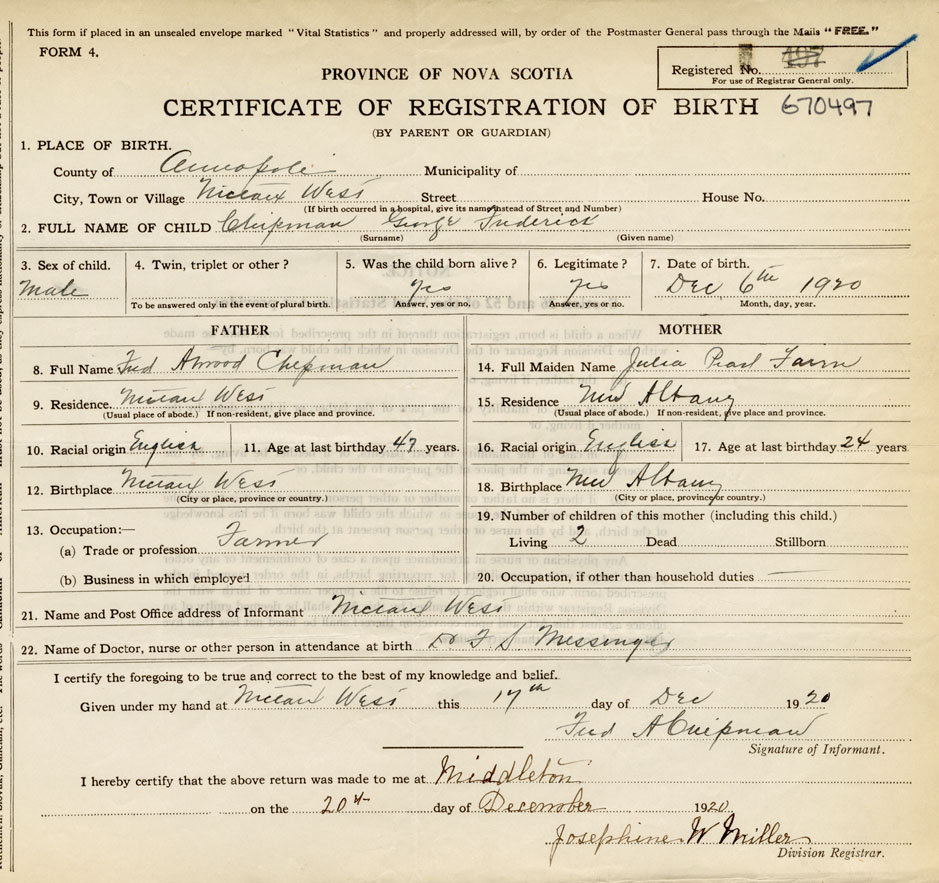 This form if placed in an unsealed envelope marked "Vital Statistics" and properly addressed will, by order of the Postmaster General pass through the Mails "FREE."
FORM 4.
Registered No. 497
For use of Registrar General only.
PROVINCE OF NOVA SCOTIA
CERTIFICATE OF REGISTRATION OF BIRTH 670497
(BY PARENT OR GUARDIAN)
1. PLACE OF BIRTH.
County of Annapolis Municipality of
City, Town or Village Nictaux West Street House No.
(If birth occurred in a hospital, give its name instead of Street and Number)
2. FULL NAME OF CHILD Chipman George Frederick
(Surname) (Given name)
3. Sex of child. 4. Twin, triplet or other? 5. Was the child born alive? 6. Legitimate? 7. Date of birth.
Male Yes Yes Dec 6th 1920
To be answered only in the event of plural birth. Answer, yes or no. Answer, yes or no. Month, day, year.
FATHER
8. Full Name Fred Atwood Chipman
9. Residence. Nictaux West
(Usual place of abode.) If non-resident, give place and province.
10. Racial origin English 11. Age at last birthday 47 years.
12. Birthplace Nictaux West
(City or place, province or country.)
13. Occupation:—
(a) Trade or profession Farmer
(b) Business in which employed
MOTHER
14. Full Maiden Name Julia Pearl
15. Residence New Albany
(Usual place of abode.) If non-resident, give place and province.
16. Racial origin English 17. Age at last birthday 24 years
18. Birthplace New Albany
(City or place, province or country.)
19. Number of children of this mother (including this child.)
Living 2 Dead Stillborn
20. Occupation, if other than household duties
21. Name and Post Office address of Informant Nictaux West
22. Name of Doctor, nurse or other person in attendance at birth Dr F. S. Messenger
I certify the foregoing to be true and correct to the best of my knowledge and belief.
Given under my hand at Nictaux West this 17th day of Dec 1920
Fred A Chipman
Signature of Informant.
I hereby certify that the above return was made to me at Middleton
on the 20th day of December 1920
Josephine W Miller
Division Registrar.